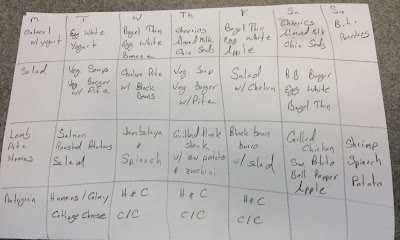 M
Oatmeal
w/ yogurt
T
Egg White
Yogurt
W
Bagel Thin
Egg White
Banana
Th
Cheerios
Almond Milk
Chia Seeds
F
Bagel Thin
Egg White
Apple
Sa
Cheerios
Almond Milk
Chia Seeds
Su
Pancakes
Salad
Veg Soup
Veg Burger
w/ Pita
Chicken Pita
w/ Black
Beans
Veg Soup
Veg Burger
w/ Pita
Salad
w/ Chicken
B.B. Burger
Egg White
Bagel Thin
Lamb
Pita
Humus
Salmon
Roasted Potatoes
Salad
Jambalaya
&
Spinach
Grilled Flank
Steak
w/ sw potato
& zucchini
Black bean
w/ salad
Grilled
Chicken
Sw. Potato
Bell Pepper
Apple
Shrimp
Spinach
Potato
Humus/Celery
Cottage Cheese
H & C
C/C
H & C
C/C
H & C
C/C